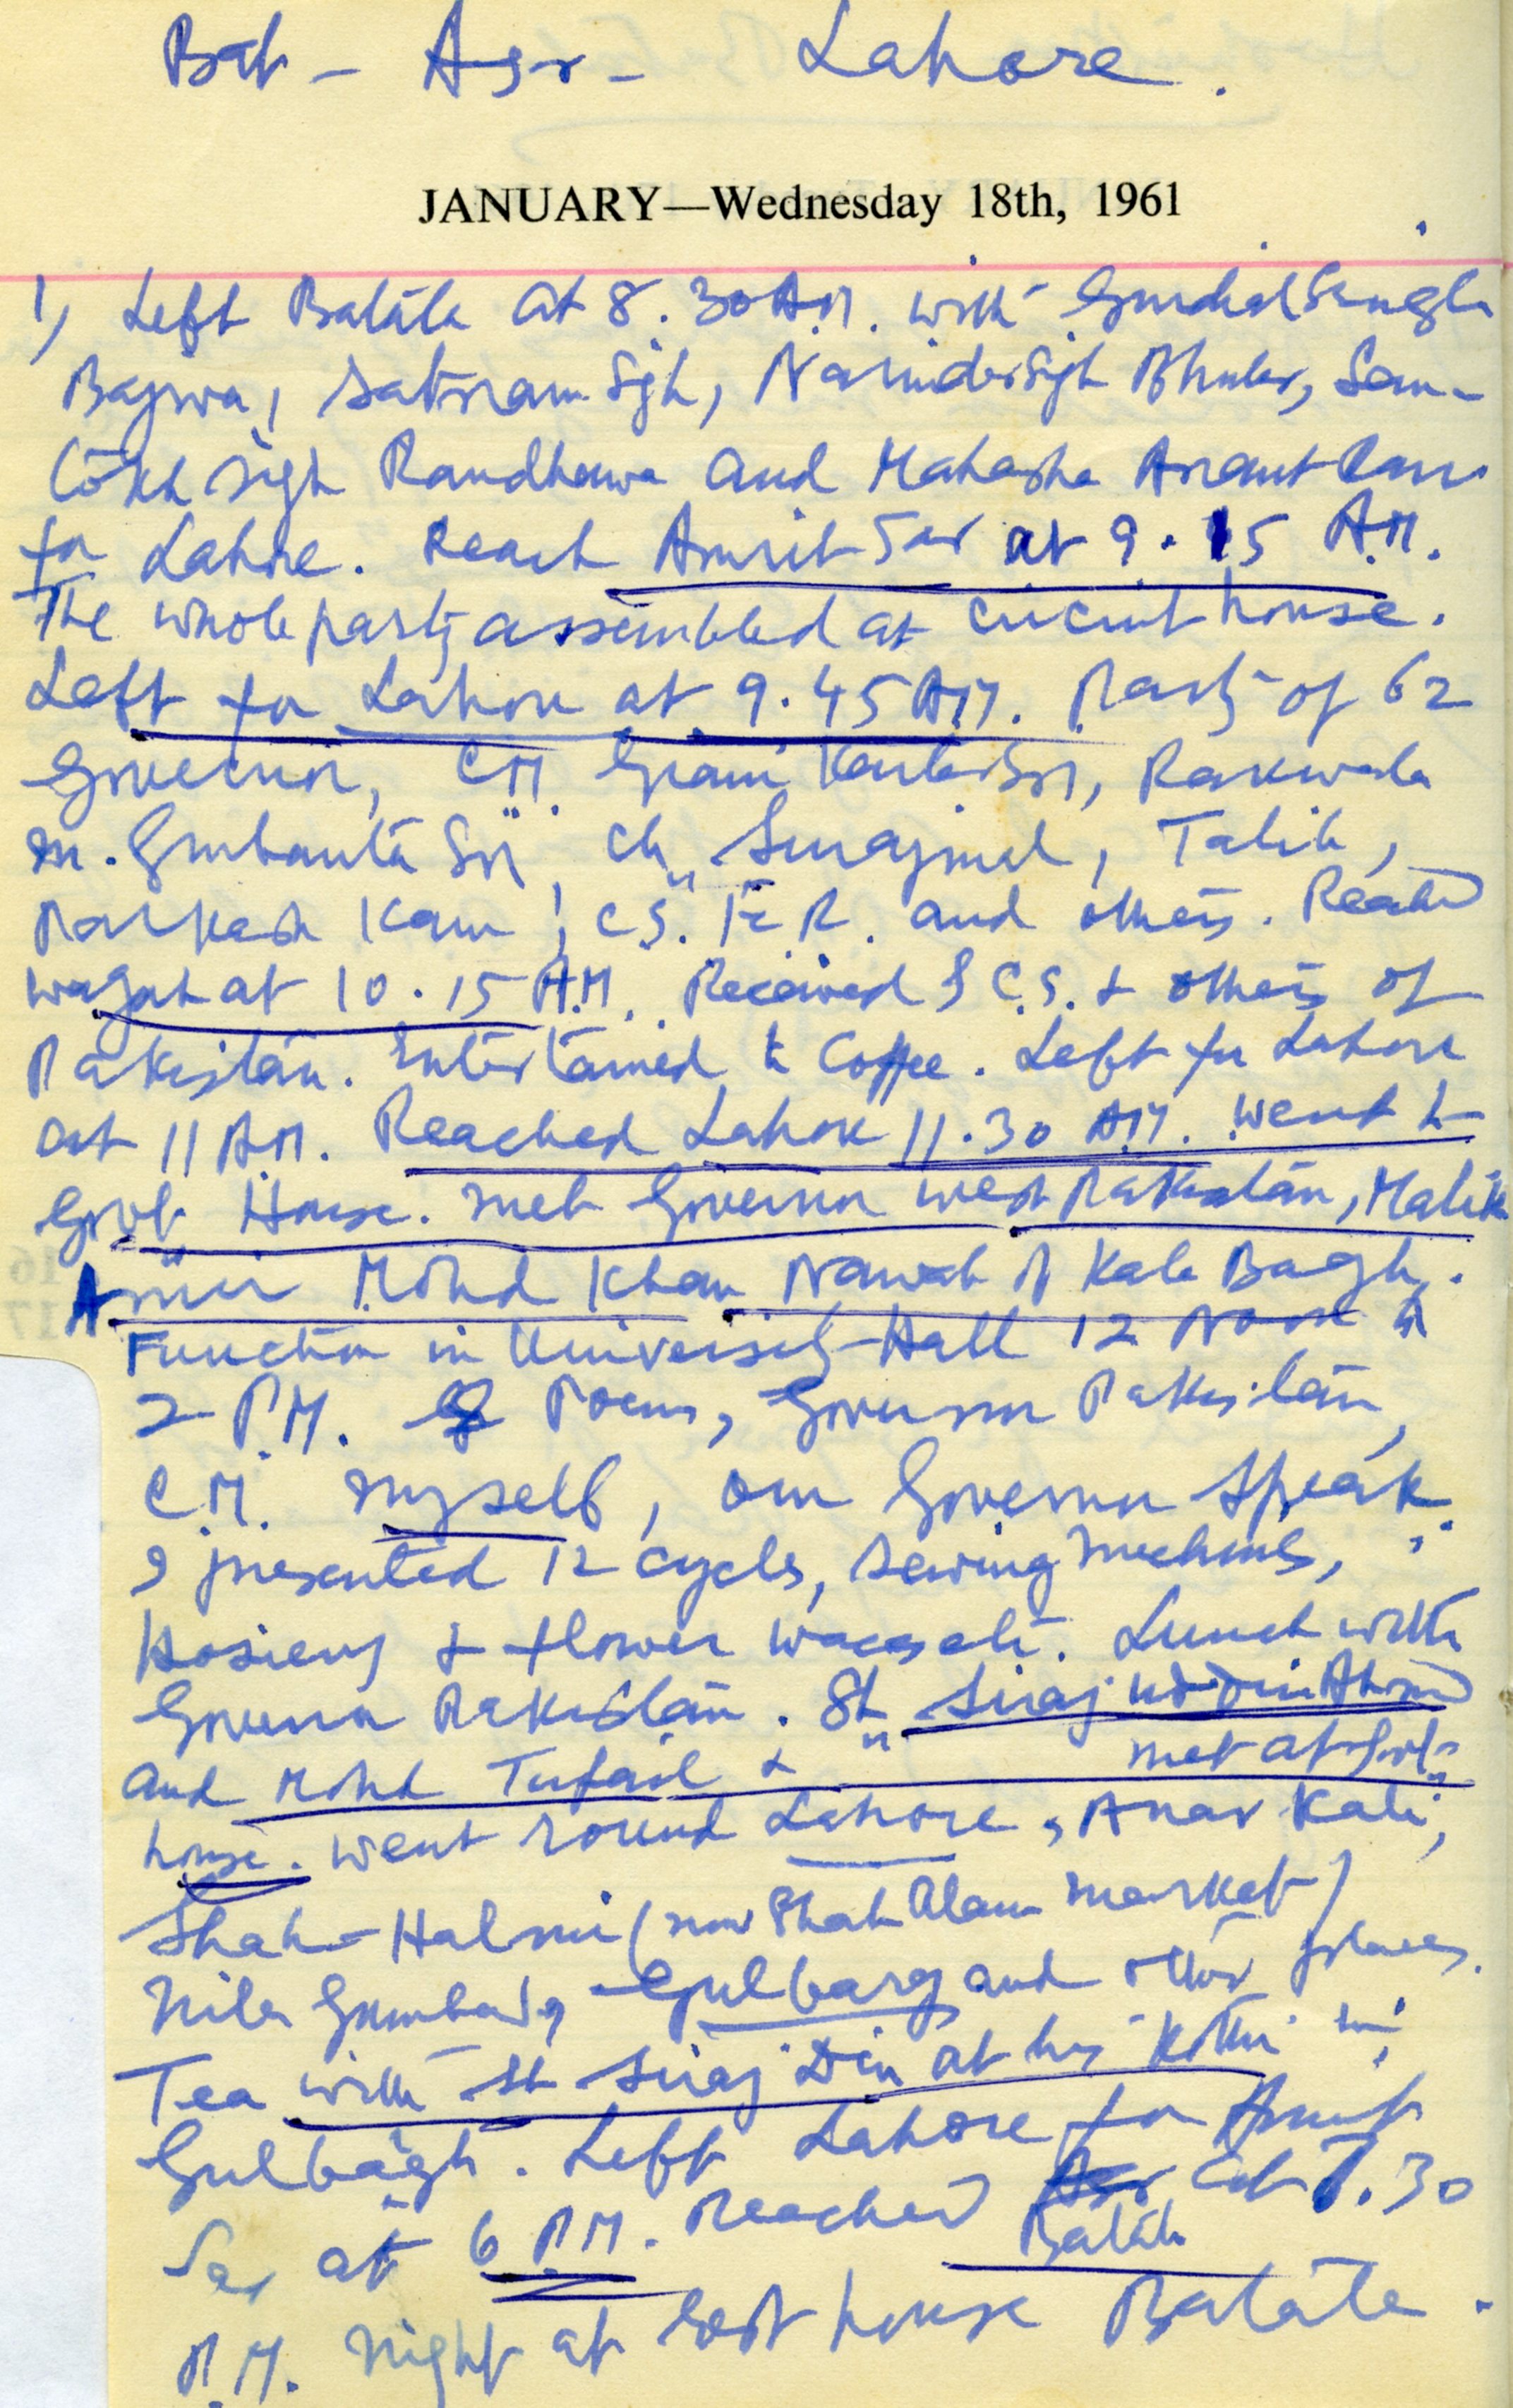 Bat - Asr - Lahore.
JANUARY—Wednesday 18th, 1961
1) Left Batala at 8.30 A.M. with Gurdial Singh
Bajwa, Satnam Sgh, Narinder Sgh Bhuler, San-
tokh Sgh Randhawa and Mahasha Anant Ram
for Lahore. Reach Amrit Sar at 9.15 A.M.
The whole party assembled at circuit house.
Left for Lahore at 9.45 A.M. Party of 62
Governor, C.M. Giani Kartar Sn, Rarewala
Sn. Gurbanta Sn, Ch. Surajmal, Talib,
Parkash Kaur, C.S. F.C.R. and others. Reached
Wagah at 10.15 A.M. Received by C.S. & others of
Pakistan. Entertained to Coffee. Left for Lahore
at 11 A.M. Reached Lahore 11.30 A.M. went to
Govt. House. Met Governor West Pakistan, Malik
Amir Mohd Khan Nawab of Kala Bagh.
Function in University Hall 12 Noon to
2 P.M. Poems, Governor Pakistan,
C.M. myself, our Governor speak.
I presented 12 cycles, sewing machines,
Hosiery & flower. Lunch with
Governor Pakistan. Sh. Siraj uddin Ahmed
and Mohd Tufail & met at Govt.
house. went round Lahore, Anar Kali,
Shah-Halmi (now Shah Alam market)
Nila Gumbad, Gulbarg and other places.
Tea with Sh Siraj Din at his Kothi in
Gulbagh. Left Lahore for Amrit
Sar at 6 P.M. Reached Batala at 7.30
P.M. Night at Rest house Batala.